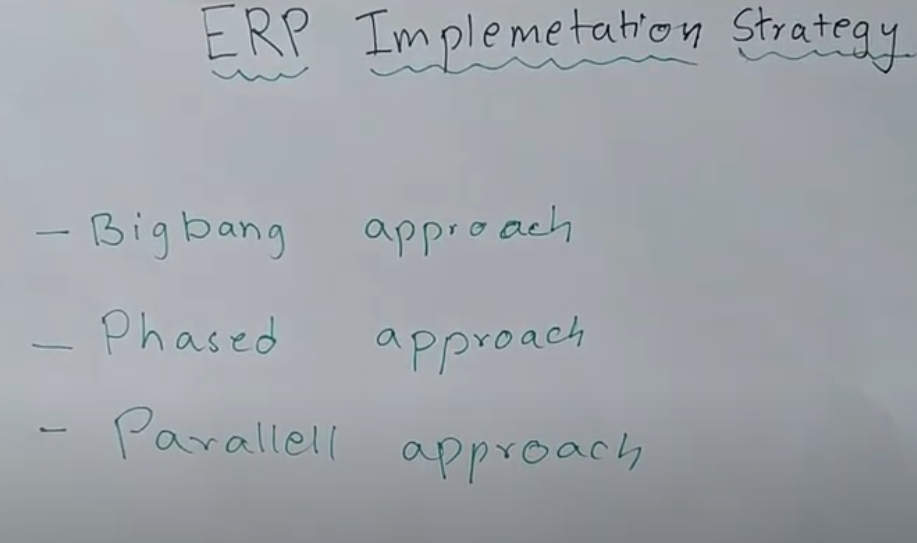 ERP Implemetation Strategy
- Bigbang approach
- Phased approach
- Parallell approach